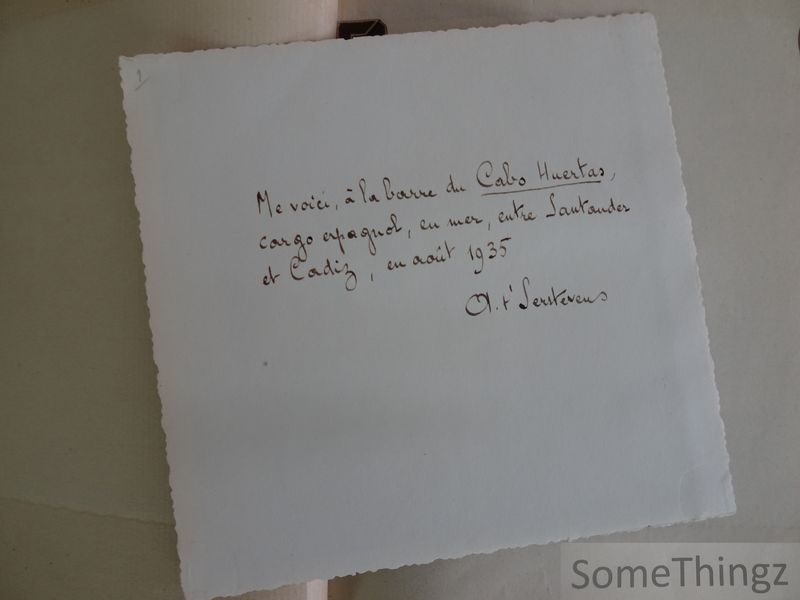 Me voici, à la barre du Cabo Huertas,
cargo espagnol, en mer, entre Santander
et Cadiz, en août 1935
A. t'Serstevens
SomeThingz